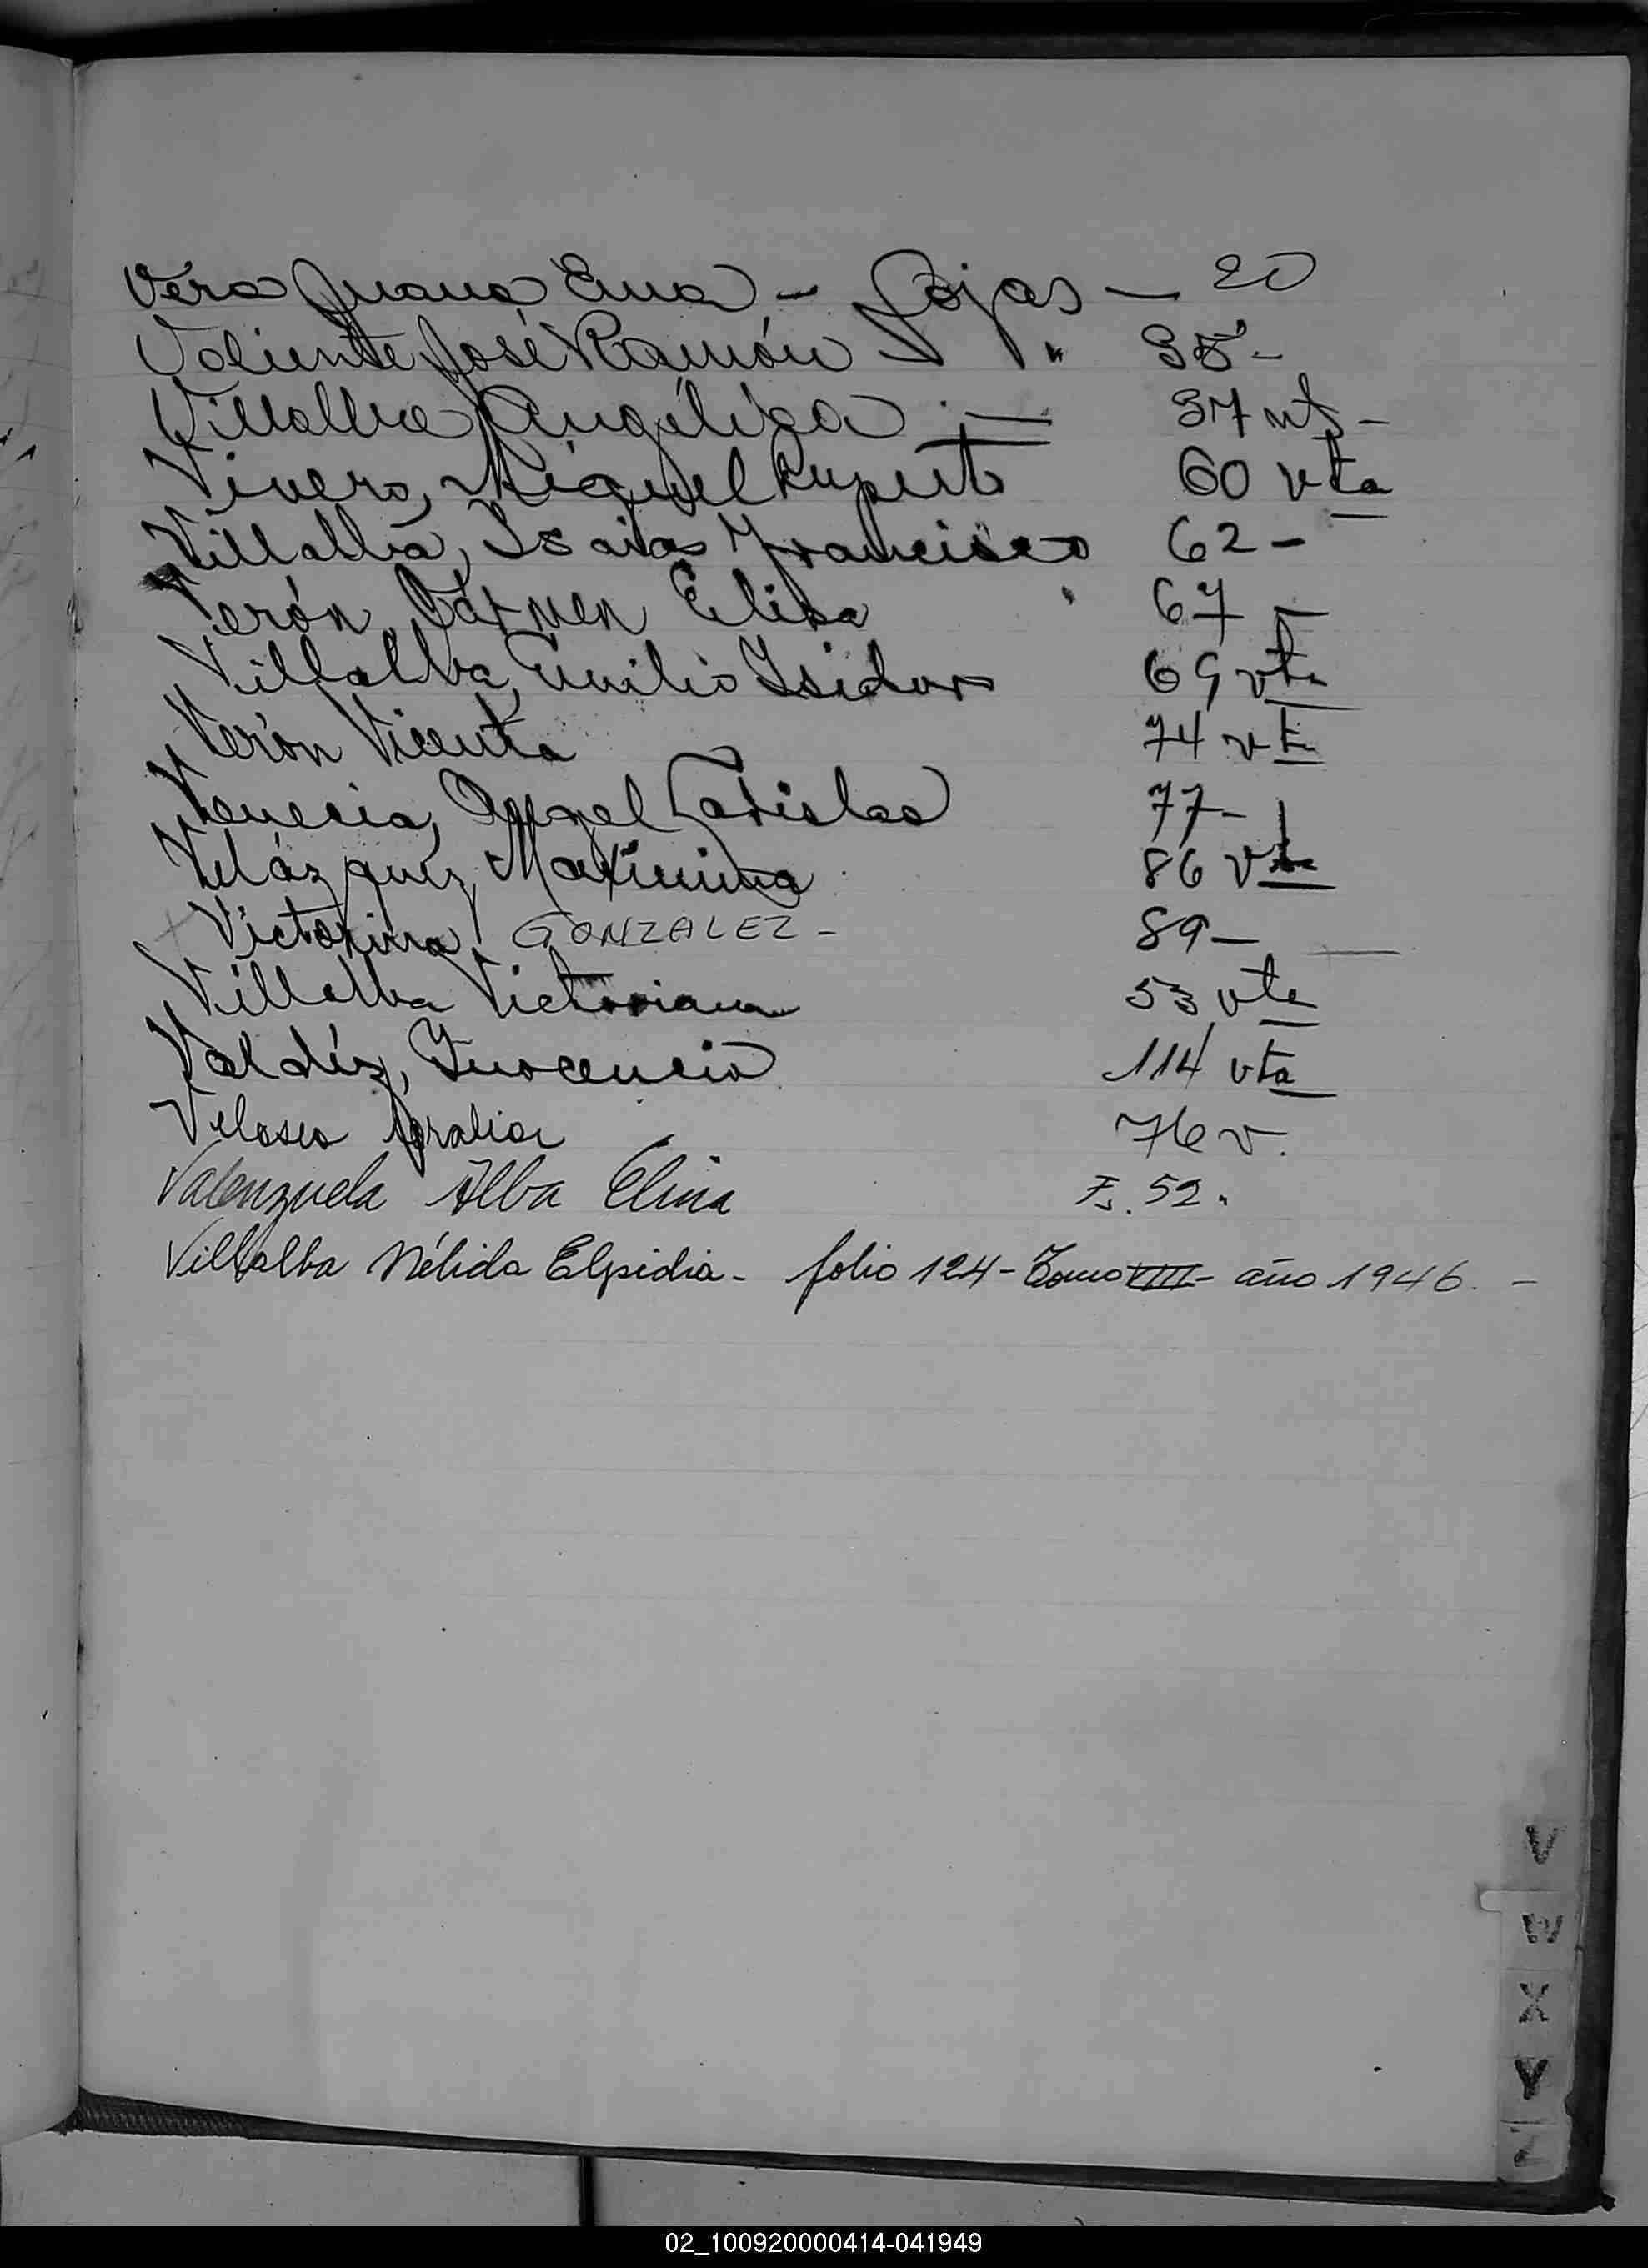 Vera Juana Ema - fojas - 20
Valiente José Ramón " 35 -
Villalba Angélica - 37 vta -
Vivero, Miguel Ruperto 60 vta
Villalba, Isaias Francisco 62 -
Verón, Carmen Elisa 67 -
Villalba, Emilio Isidoro 69 vta
Verón Vicenta 74 vta
Venecia, Angel Ladislao 77 -
Velázquez, Maximina 86 vta
Victorina GONZALEZ - 89 -
Villalba Victoriana 53 vta
Valdéz, Inocencio 114 vta
Velasco 76 v.
Valenzuela Alba Elina Fs. 52.
Villalba Nélida Elpidia - folio 124 - Tomo VIII - año 1946. -
V
W
X
Y
Z
02_100920000414-041949